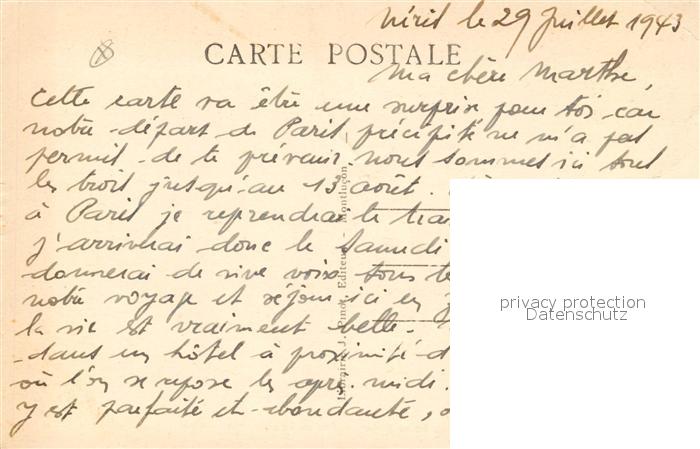 Néris le 29 Juillet 1943
CARTE POSTALE
Ma chère Marthe,
Cette carte va être une surprise pour toi car
notre départ de Paris précipité ne m'a pas
permis de te prévenir. nous sommes ici tous
les trois jusqu'au 13 août.
à Paris je reprendrai le
j'arriverai donc le Samedi
donnerai de vive voix tous
notre voyage et séjour ici en
la vie est vraiment belle.
dans un hôtel à proximité
où l'on se repose les après-midi.
y est parfaite et abondante,
privacy protection
Datenschutz